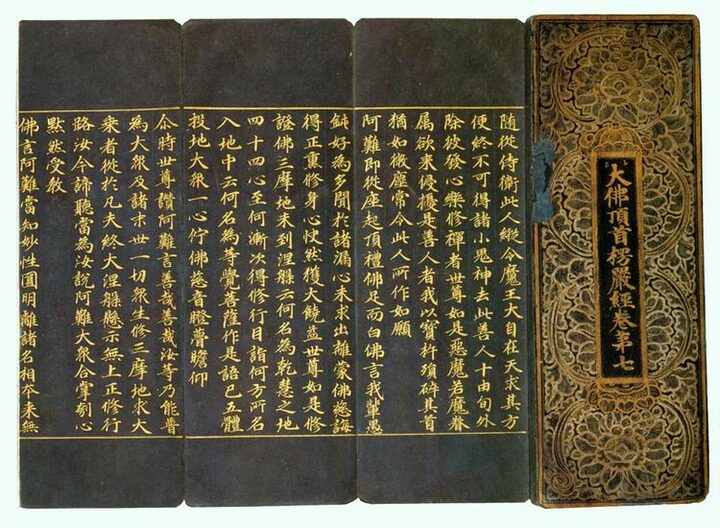 大佛頂首楞嚴經卷第七
隨從侍衛此人縱令魔王大自在天求其方
便終不可得諸小鬼神去此善人十由旬外
除彼發心樂修禪者世尊如是惡魔若魔眷
属欲來侵擾是善人者我以寶杵殞碎其首
猶如微塵常令此人所作如願
阿難即從座起頂禮佛足而白佛言我輩愚
鈍好為多聞於諸漏心未求出離蒙佛慈誨
得正熏修身心快然獲大饒益世尊如是修
證佛三摩地未到涅槃云何名為乾慧之地
四十四心至何漸次得修行目詣何方所名
入地中云何名為等覺菩薩作是語已五體
投地大眾一心佇佛慈音瞪瞢瞻仰
尒時世尊讚阿難言善哉善哉汝等乃能普
為大眾及諸末世一切眾生修三摩地求大
乘者從於凡夫終大涅槃懸示無上正修行
路汝今諦聽當為汝說阿難大眾合掌刳心
默然受教
佛言阿難當知妙性圓明離諸名相本来無